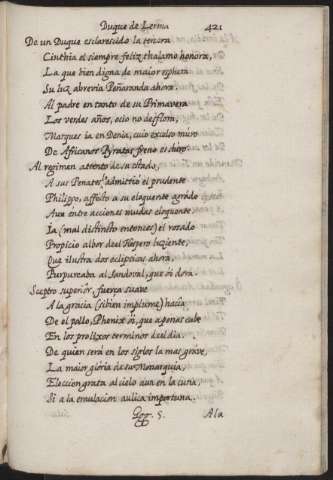 Duque de Lerma 421
De un Duque esclarecido la tercera
Cinthia el siempre feliz thalamo honora,
La que bien digna de maior esphera
Su luz abrevia Peñaranda ahora:
Al padre en tanto de su Primavera
Los verdes años, ocio no desflora,
Marques ia en Denia, cuio excelso muro
De Africanos Pyratas freno es duro.
Al regimen attento de su estado,
A sus Penates le admittio el prudente
Philippo, affecto a su eloquente agrado
Aun entre acciones mudas eloquente.
Ia (mal distincto entonces) el rosado
Propicio albor del Hespero luziente,
Que ilustra dos eclipticas ahora,
Purpureaba al Sandoval, que oi dora.
Sceptro superior, fuerça suave
A la gracia (si bien implume) hacia
De el pollo, Phenix oi, que apenas cabe
En los prolixos terminos del dia.
De quien será en los siglos la mas grave,
La maior gloria de su Monarquia,
Eleccion grata al cielo aun en la cuna,
Si a la emulacion aulica importuna.
Ggg. 5. A la